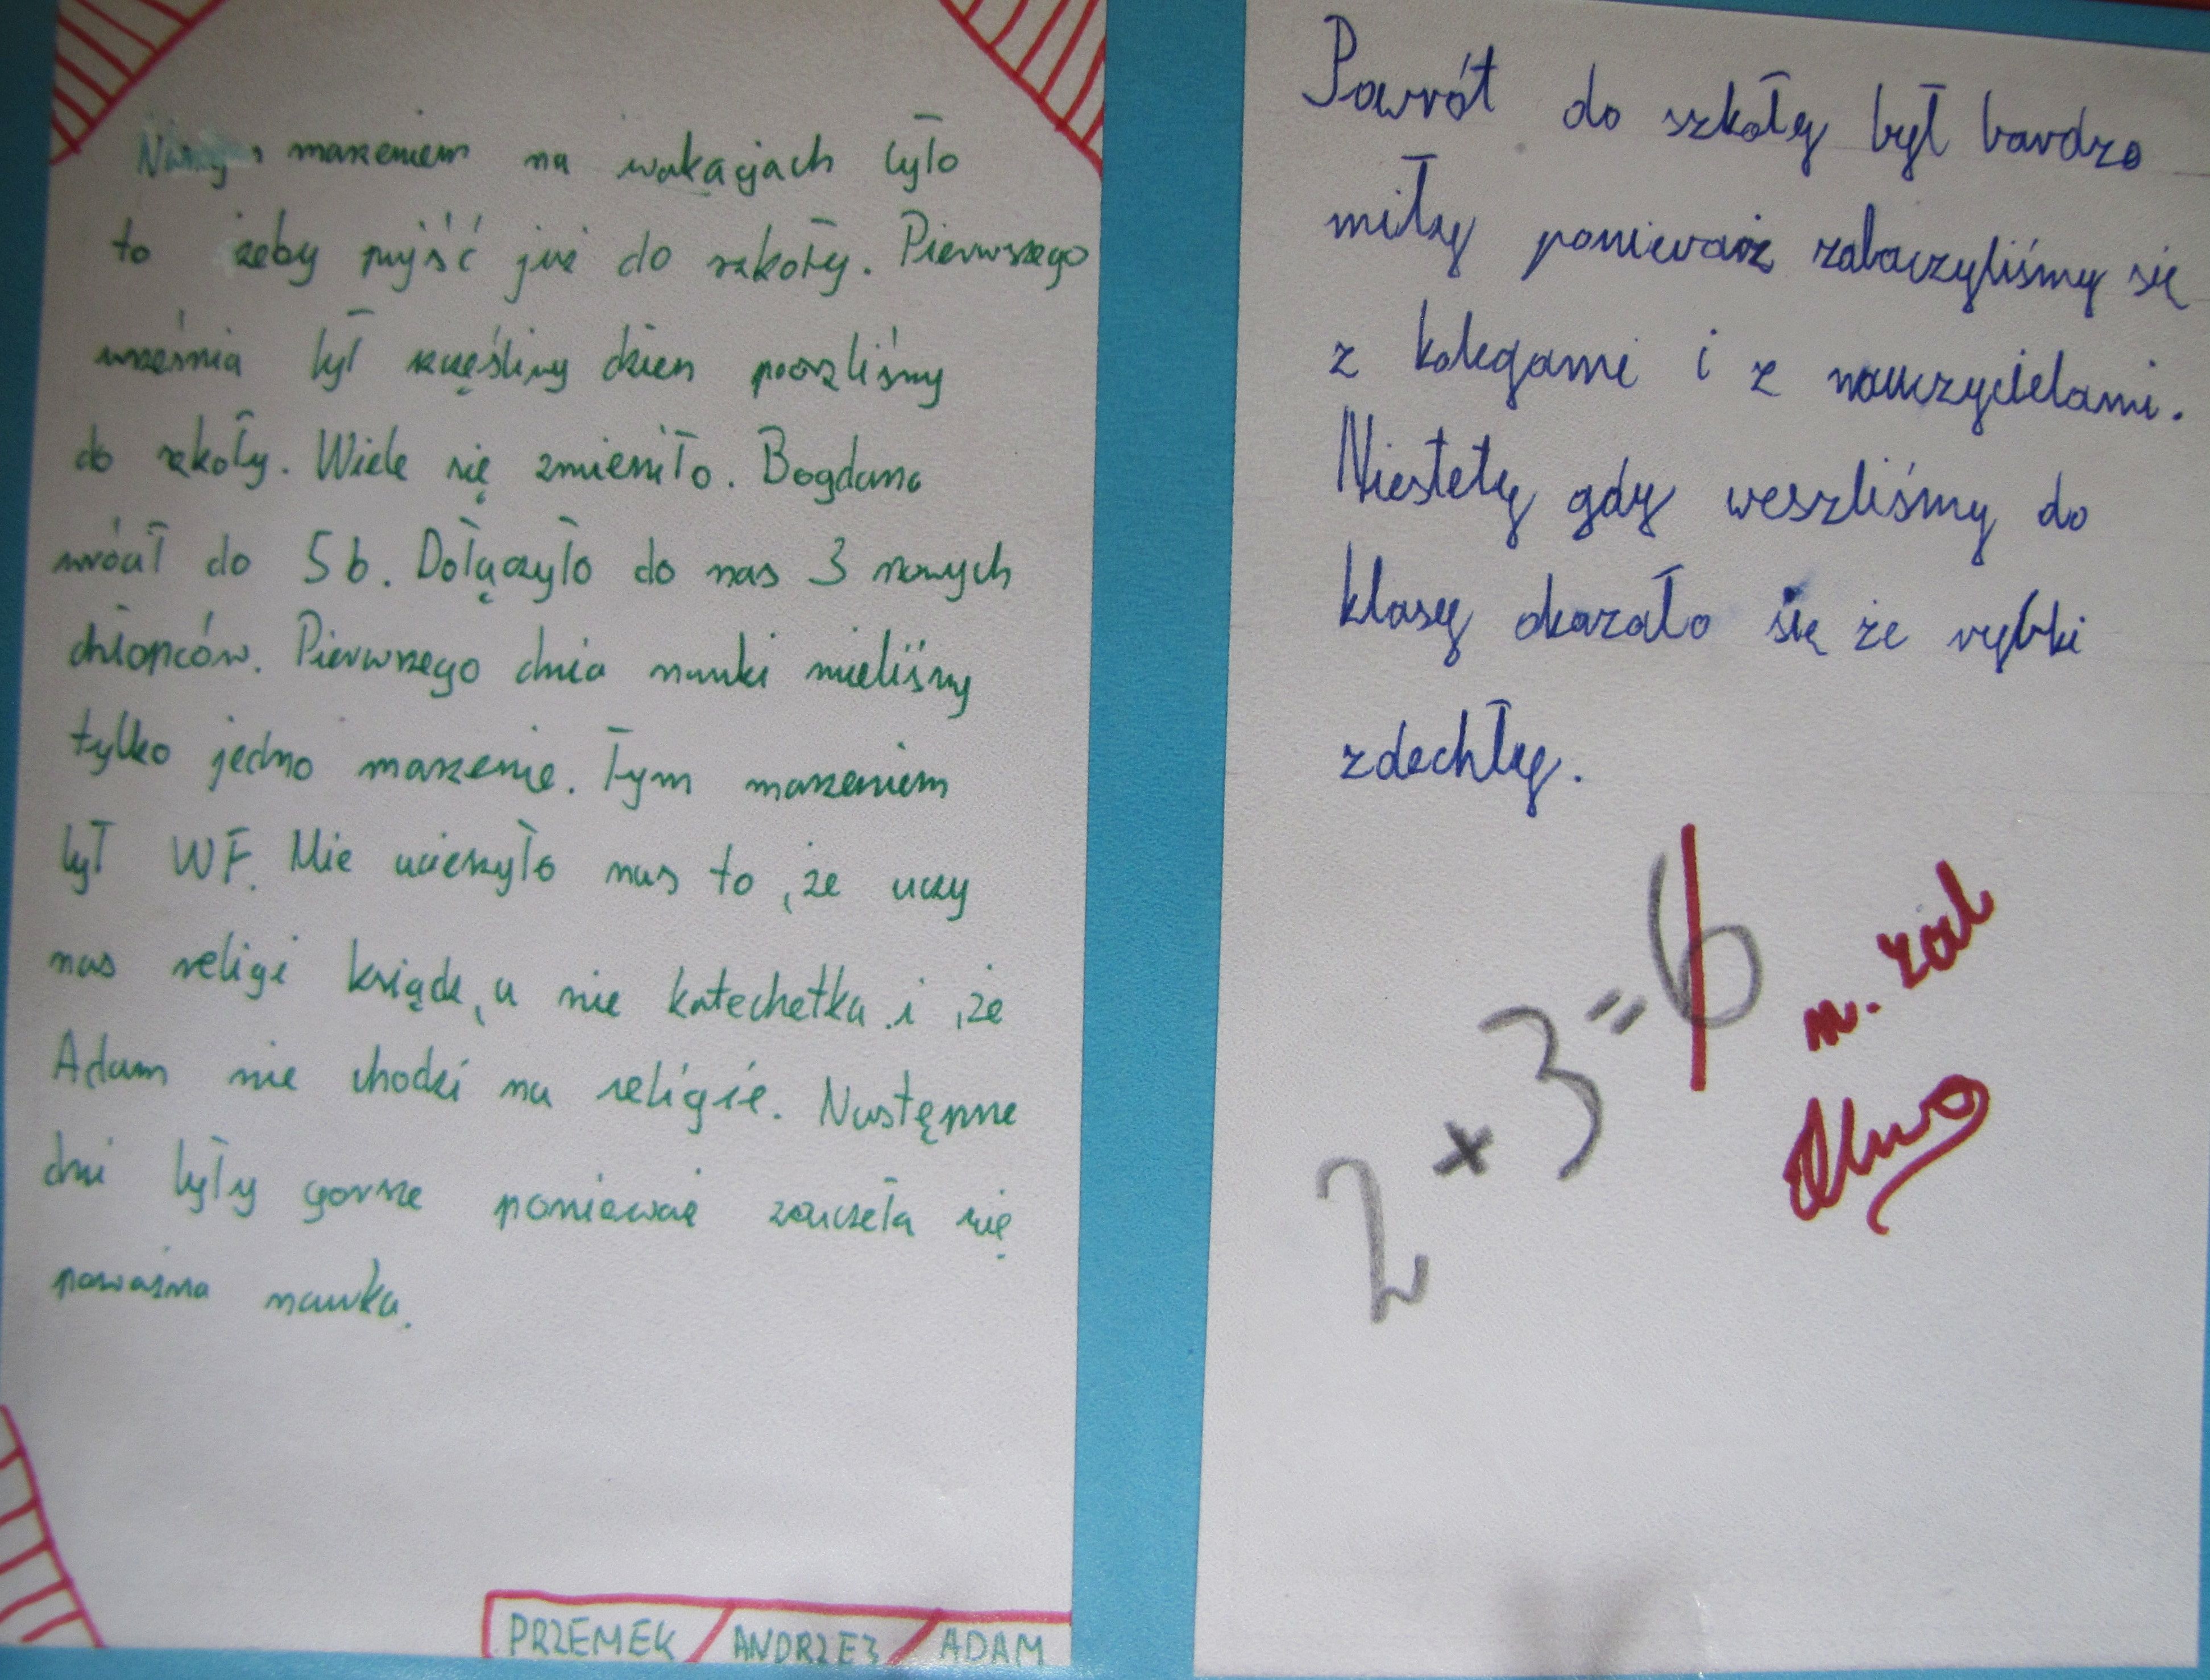 Naszym marzeniem na wakacjach było
to żeby pujść już do szkoły. Pierwszego
września był szczęśliwy dzien poszliśmy
do szkoły. Wiele się zmieniło. Bogdana
wrócił do 5b. Dołączyło do nas 3 nowych
chłopców. Pierwszego dnia nauki mieliśmy
tylko jedno marzenie. Tym marzeniem
był WF. Nie ucieszyło nas to, że uczy
nas religi ksiądz, a nie katechetka i, że
Adam nie chodzi na religie. Następne
dni były gorsze ponieważ zaczeła się
poważna nauka.
PRZEMEK / ANDRZEJ / ADAM
Powrót do szkoły był bardzo
miły ponieważ zabaczyliśmy się
z kolegami i z nauczycielami.
Niestety gdy weszliśmy do
klasy okazało się że rybki
zdechły.
2 x 3 = 6